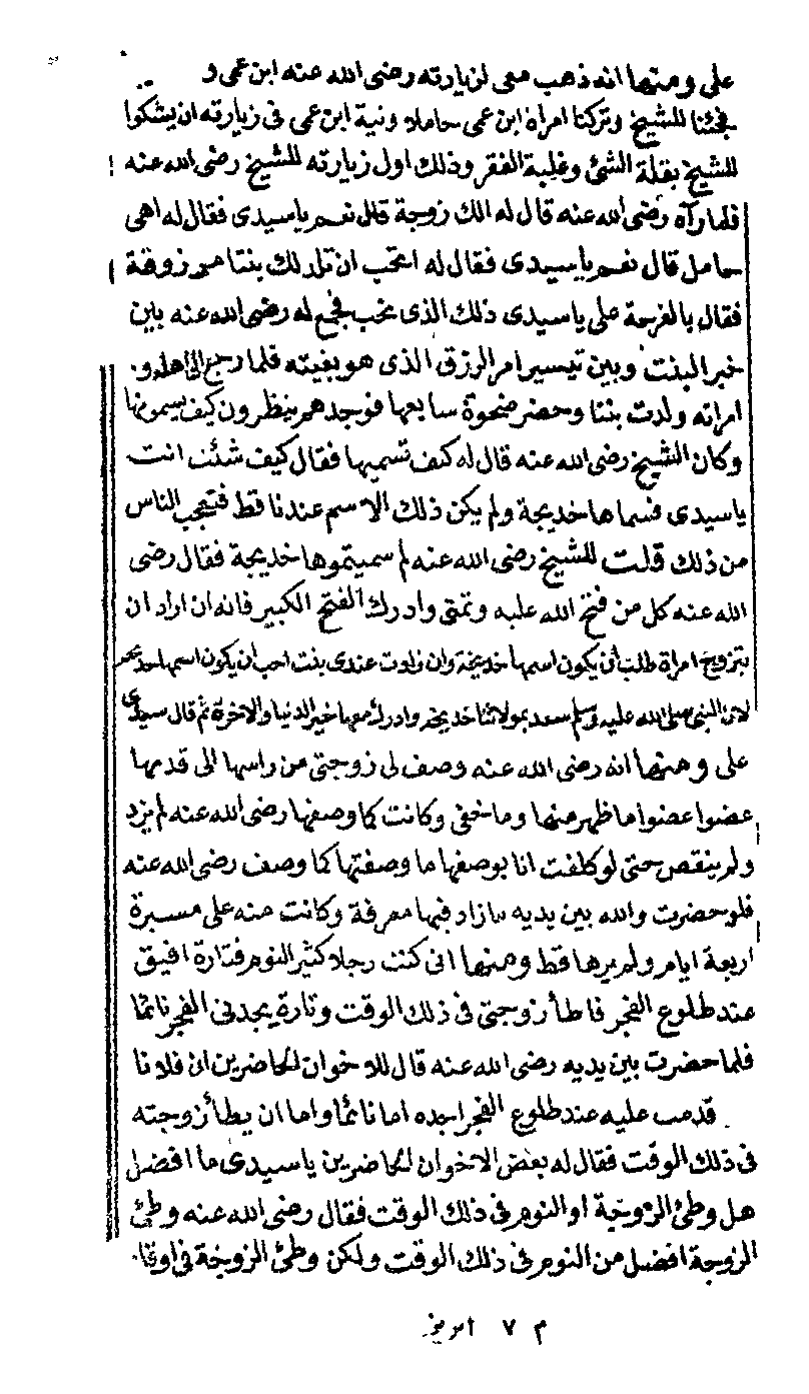 على ومنها انه ذهب معى لزيارته رضى الله عنه ابن عمى و
فجئنا للشيخ وتركنا امراة ابن عمى حاملا ونية ابن عمى فى زيارته ان يشكوا
للشيخ بقلة الشئ وغلبة الفقر وذلك اول زيارته للشيخ رضى الله عنه
فلما رآه رضى الله عنه قال له الك زوجة قال نعم ياسيدى فقال له اهى
حامل قال نعم ياسيدى فقال له اتحب ان تلد لك بنتا مرزوقة
فقال بالفرحة على ياسيدى ذلك الذى نحب فجمع له رضى الله عنه بين
خبر البنت وبين تيسير امر الرزق الذى هو بغيته فلما رجع الى اهله و
امراته ولدت بنتا وحضر ضحوة سابعها فوجدهم ينظرون كيف يسمونها
وكان الشيخ رضى الله عنه قال له كيف تسميها فقال كيف شئت انت
ياسيدى فسماها خديجة ولم يكن ذلك الاسم عندنا قط فتعجب الناس
من ذلك قلت للشيخ رضى الله عنه لم سميتموها خديجة فقال رضى
الله عنه كل من فتح الله عليه وتمنى وادرك الفتح الكبير فانه ان اراد ان
يتزوج امراة طلب ان يكون اسمها خديجة وان زادت عندى بنت احب ان يكون اسمها خديجة
لان النبى صلى الله عليه وسلم سعد بمولاتنا خديجة وادرك معها خير الدنيا والاخرة ثم قال سيدى
على ومنها انه رضى الله عنه وصف لى زوجتى من راسها الى قدمها
عضوا عضوا ما ظهر منها وما خفى وكانت كما وصفها رضى الله عنه لم يزد
ولم ينقص حتى لو كلفت انا بوصفها ما وصفتها كما وصف رضى الله عنه
فلو حضرت والله بين يديه مازاد فيها معرفة وكانت منه على مسيرة
اربعة ايام ولم يرها قط ومنها انى كنت رجلا كثير النوم فتارة افيق
عند طلوع الفجر فاطأ زوجتى فى ذلك الوقت وتارة يجدنى الفجر نائما
فلما حضرت بين يديه رضى الله عنه قال للاخوان الحاضرين ان فلانا
قدمت عليه عند طلوع الفجر اجده اما نائما واما ان يطأ زوجته
فى ذلك الوقت فقال له بعض الاخوان الحاضرين ياسيدى ما افضل
هل وطئ الزوجة او النوم فى ذلك الوقت فقال رضى الله عنه وطئ
الزوجة افضل من النوم فى ذلك الوقت ولكن وطئ الزوجة فى اوقا
م ٧ ابريز